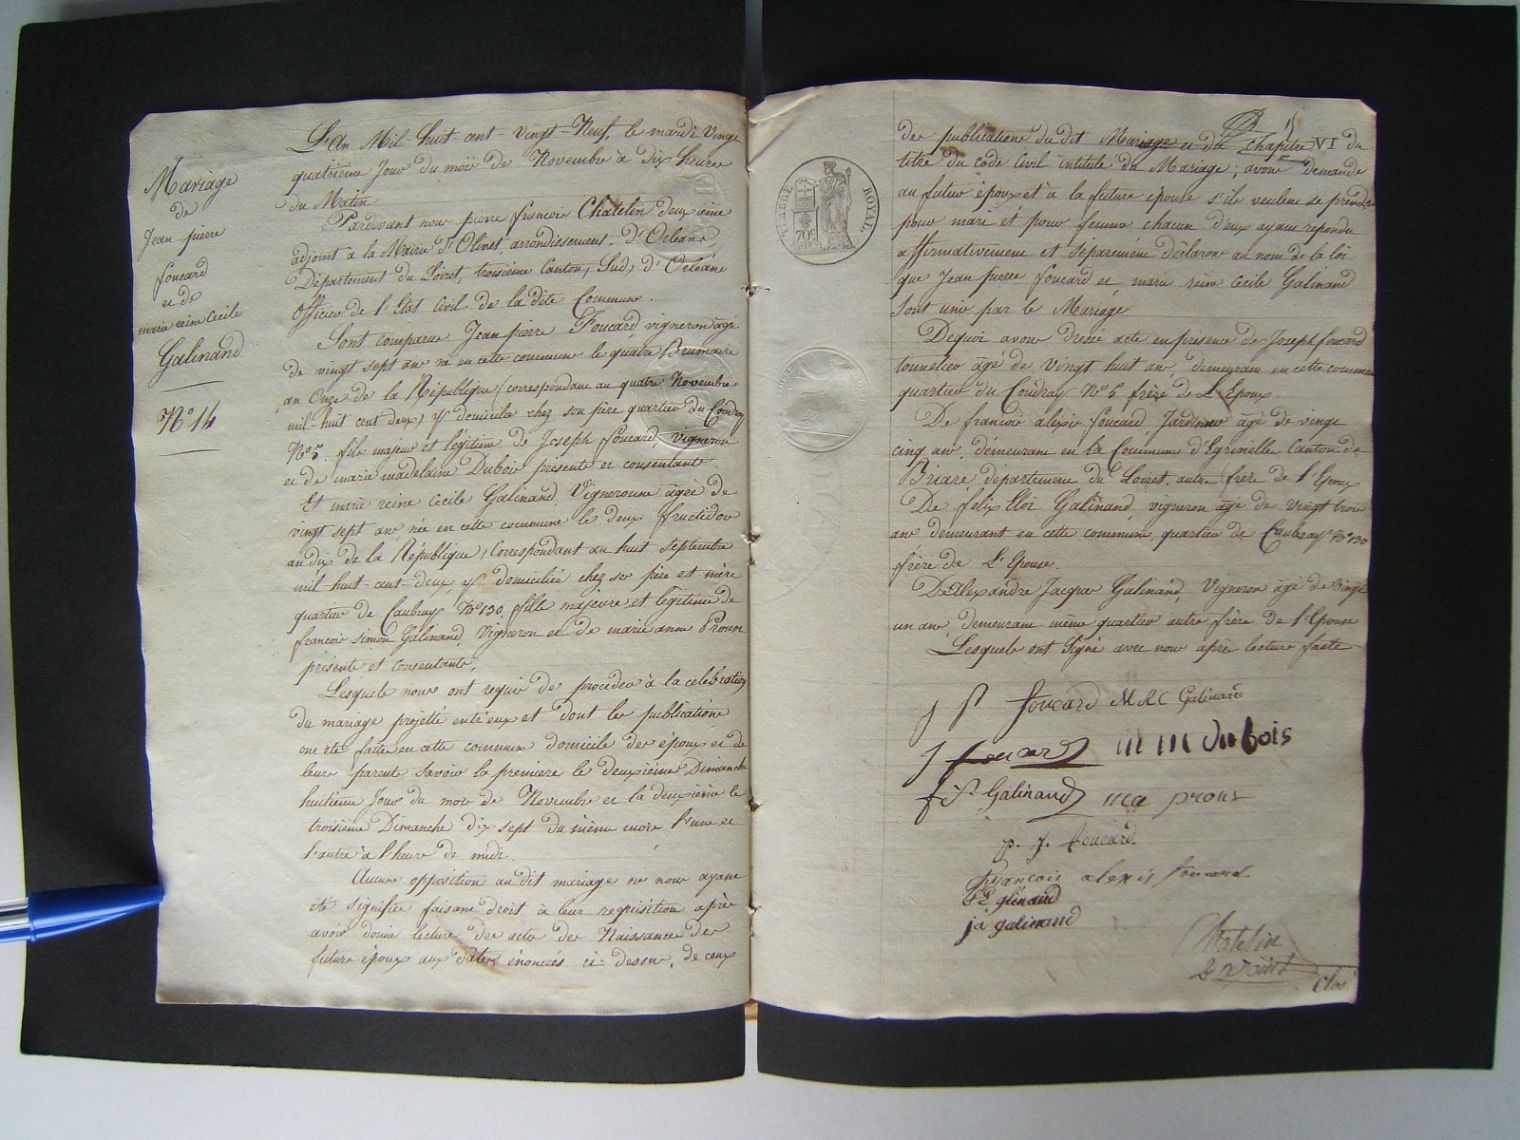 Mariage
de
Jean pierre
foucard
et de
marie reine Cecile
Galinand
N° 14
L'An Mil huit cent Vingt-Neuf, le mardi Vingt
quatrième Jour du mois de Novembre à dix heures
du Matin
Pardevant nous pierre francois Chatelin deuxième
adjoint à la Mairie d'Olivet arrondissement d'Orleans,
Département du Loiret, troisième Canton, Sud, d'Orleans
Officier de l'Etat Civil de la dite Commune.
Sont comparus Jean pierre Foucard vigneron âgé
de vingt sept ans né en cette commune le quatre Brumaire
an Onze de la République (correspondant au quatre Novembre
mil-huit cent deux) y domicilié chez son père quartier du Coudray
N° 5. fils majeur et légitime de Joseph foucard vigneron
et de marie madelaine Dubois présents et consentants.
Et marie reine Cecile Galinand Vigneronne âgée de
vingt sept ans née en cette commune le deux fructidor
an dix de la République, Correspondant au huit septembre
mil huit-cent-deux, y domiciliée chez ses père et mère
quartier de Caubray N° 130 fille majeure et légitime de
francois simon Galinand, Vigneron et de marie anne Prous
présents et consentants.
Lesquels nous ont requis de procéder à la celebration
du mariage projetté entr'eux et dont les publications
ont été faites en cette commune domicile des époux et de
leurs parents savoir la première le deuxième Dimanche
huitième Jour du mois de Novembre et la deuxième le
troisième Dimanche dix sept du même mois l'une et
l'autre à l'heure de midi.
Aucune opposition au dit mariage ne nous ayant
été signifiée faisant droit à leur requisition après
avoir donné lecture des actes de Naissance des
futurs époux aux dates enoncées ci-dessus, de ceux
TIMBRE ROYAL
70c
des publications du dit Mariage et du Chapitre VI du
titre du code Civil intitulé du Mariage; avons demandé
au futur époux et à la future épouse s'ils veulent se prendre
pour mari et pour femme chacun d'eux ayant répondu
affirmativement et séparément déclarons au nom de la loi
que Jean pierre foucard et marie reine Cecile Galinand
Sont unis par le Mariage
Dequoi avons dressé acte en présence de Joseph foucard
tonnelier âgé de Vingt huit ans, demeurant en cette commune
quartier du Coudray N° 5 frère de L'Epoux.
De francois alexis foucard Jardinier âgé de vingt
cinq ans, demeurant en la Commune d'Egrinelle Canton de
Briare département du Loiret, autre frère de l'Epoux
De felix Eloi Galinand, vigneron âgé de vingt trois
ans demeurant en cette commune, quartier de Caubray N° 130
frère de L'Epouse.
De Alexandre Jacques Galinand, Vigneron âgé de Vingt
un ans, demeurant même quartier autre frère de l'Epouse
Lesquels ont Signé avec nous après lecture faite
J P foucard M R C Galinand
J foucard m m dubois
f S Galinand m a prous
p. J. foucard
françois alexis foucard
galinand
j a galinand
Chatelin
Clos